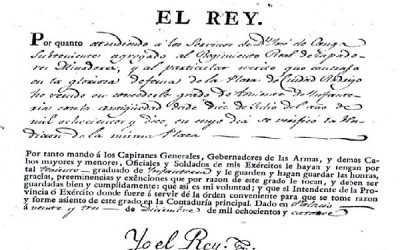 EL REY.
Por quanto atendiendo a los Servicios de Dn. José de Canga
Subteniente agregado al Regimiento Real de Zapado-
res Minadores, y al particular merito que contrajo
en la gloriosa defensa de la Plaza de Ciudad Rodrigo
he venido en concederle grado de Teniente de Infante-
ria con la antigüedad de diez de Julio del año de
mil ochocientos y diez, en cuyo dia se verificó la Ren-
dicion de la misma Plaza
Por tanto mando á los Capitanes Generales, Gobernadores de las Armas, y demas Ca-
bos mayores y menores, Oficiales y Soldados de mis Exércitos le hayan y tengan por
tal Teniente graduado de Infanteria y le guarden y hagan guardar las honras,
gracias, preeminencias y exênciones que por razon de este grado le tocan, y deben ser
guardadas bien y cumplidamente: que así es mi voluntad; y que el Intendente de la Pro-
vincia ó Exército donde fuere á servir dé la órden conveniente para que se tome razon
y forme asiento de este grado en la Contaduría principal. Dado en Palacio
á veinte y tres de Diciembre de mil ochocientos y catorce
Yo el Rey.